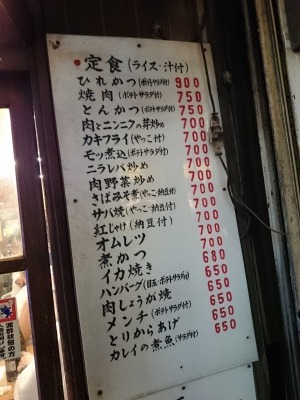 ●定食(ライス・汁付)
ひれかつ(ポテトサラダ付) 900
焼肉(ポテトサラダ付) 750
とんかつ(ポテトサラダ付) 750
肉とニンニクの芽炒め 700
カキフライ(やっこ付) 700
モツ煮込(ポテトサラダ付) 700
ニラレバ炒め 700
肉野菜炒め 700
さばみそ煮(やっこ・納豆付) 700
サバ焼(やっこ・納豆付) 700
紅じゃけ(納豆付) 700
オムレツ 700
煮かつ 680
イカ焼き 650
ハンバーグ(目玉・ポテトサラダ付) 650
肉しょうが焼 650
メンチ(ポテトサラダ付) 650
とりからあげ 650
カレイの煮魚(サラダ付)
泥酔状態の方